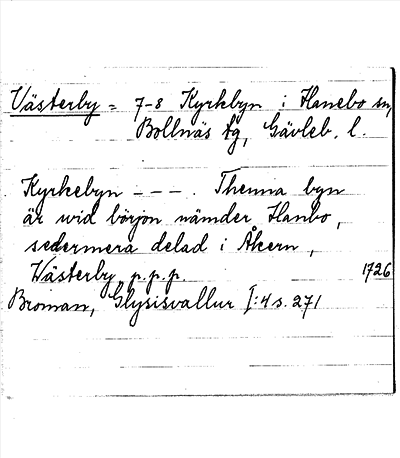 Västerby = 7-8 Kyrkbyn i Hanebo sn,
Bollnäs tg, Gävleb. l.
Kyrkebyn - - - . Thenna byn
är wid börjon nämder Hanbo,
sedermera delad i Åkern,
Wästerby, p.p.p. 1726
Broman, Glysisvallur I:4 s. 271